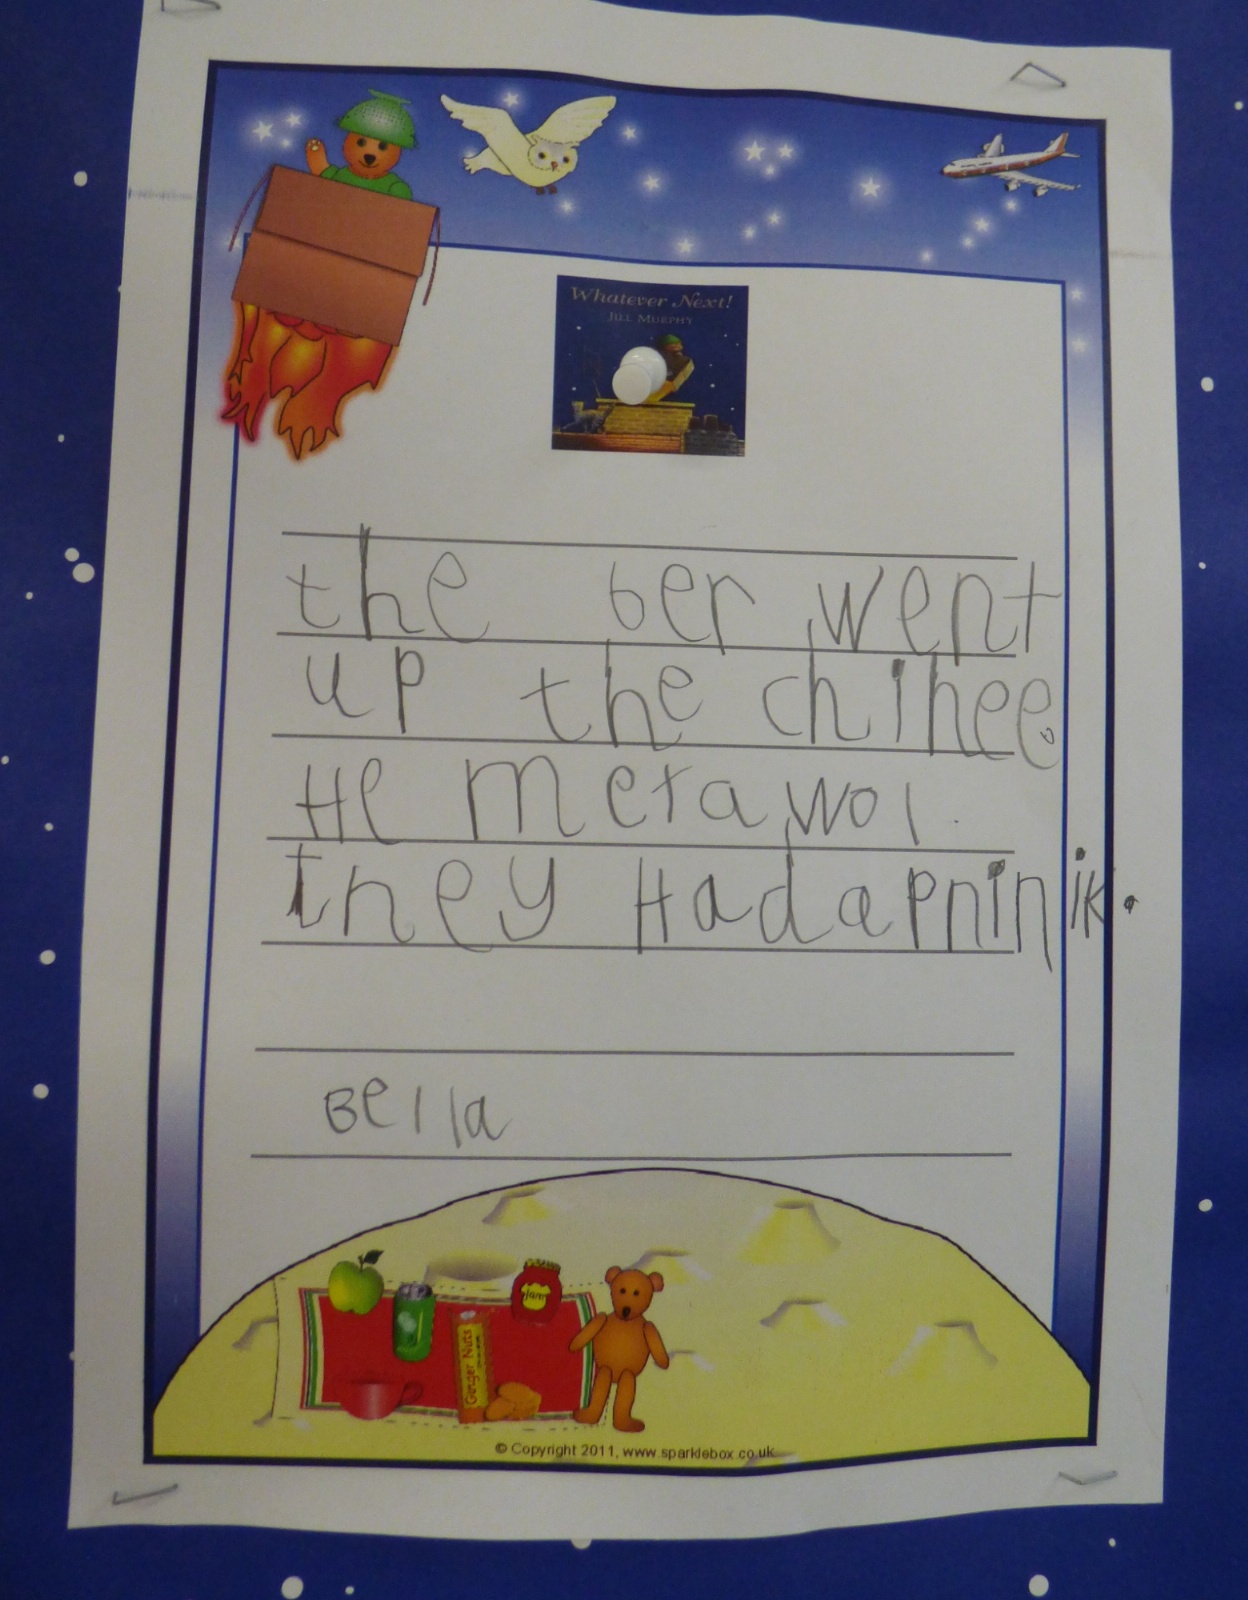 Whatever Next!
JILL MURPHY
the ber went
up the chihee.
He metawol.
they Hadapninik.
Bella
jam
Ginger Nuts
© Copyright 2011, www.sparklebox.co.uk